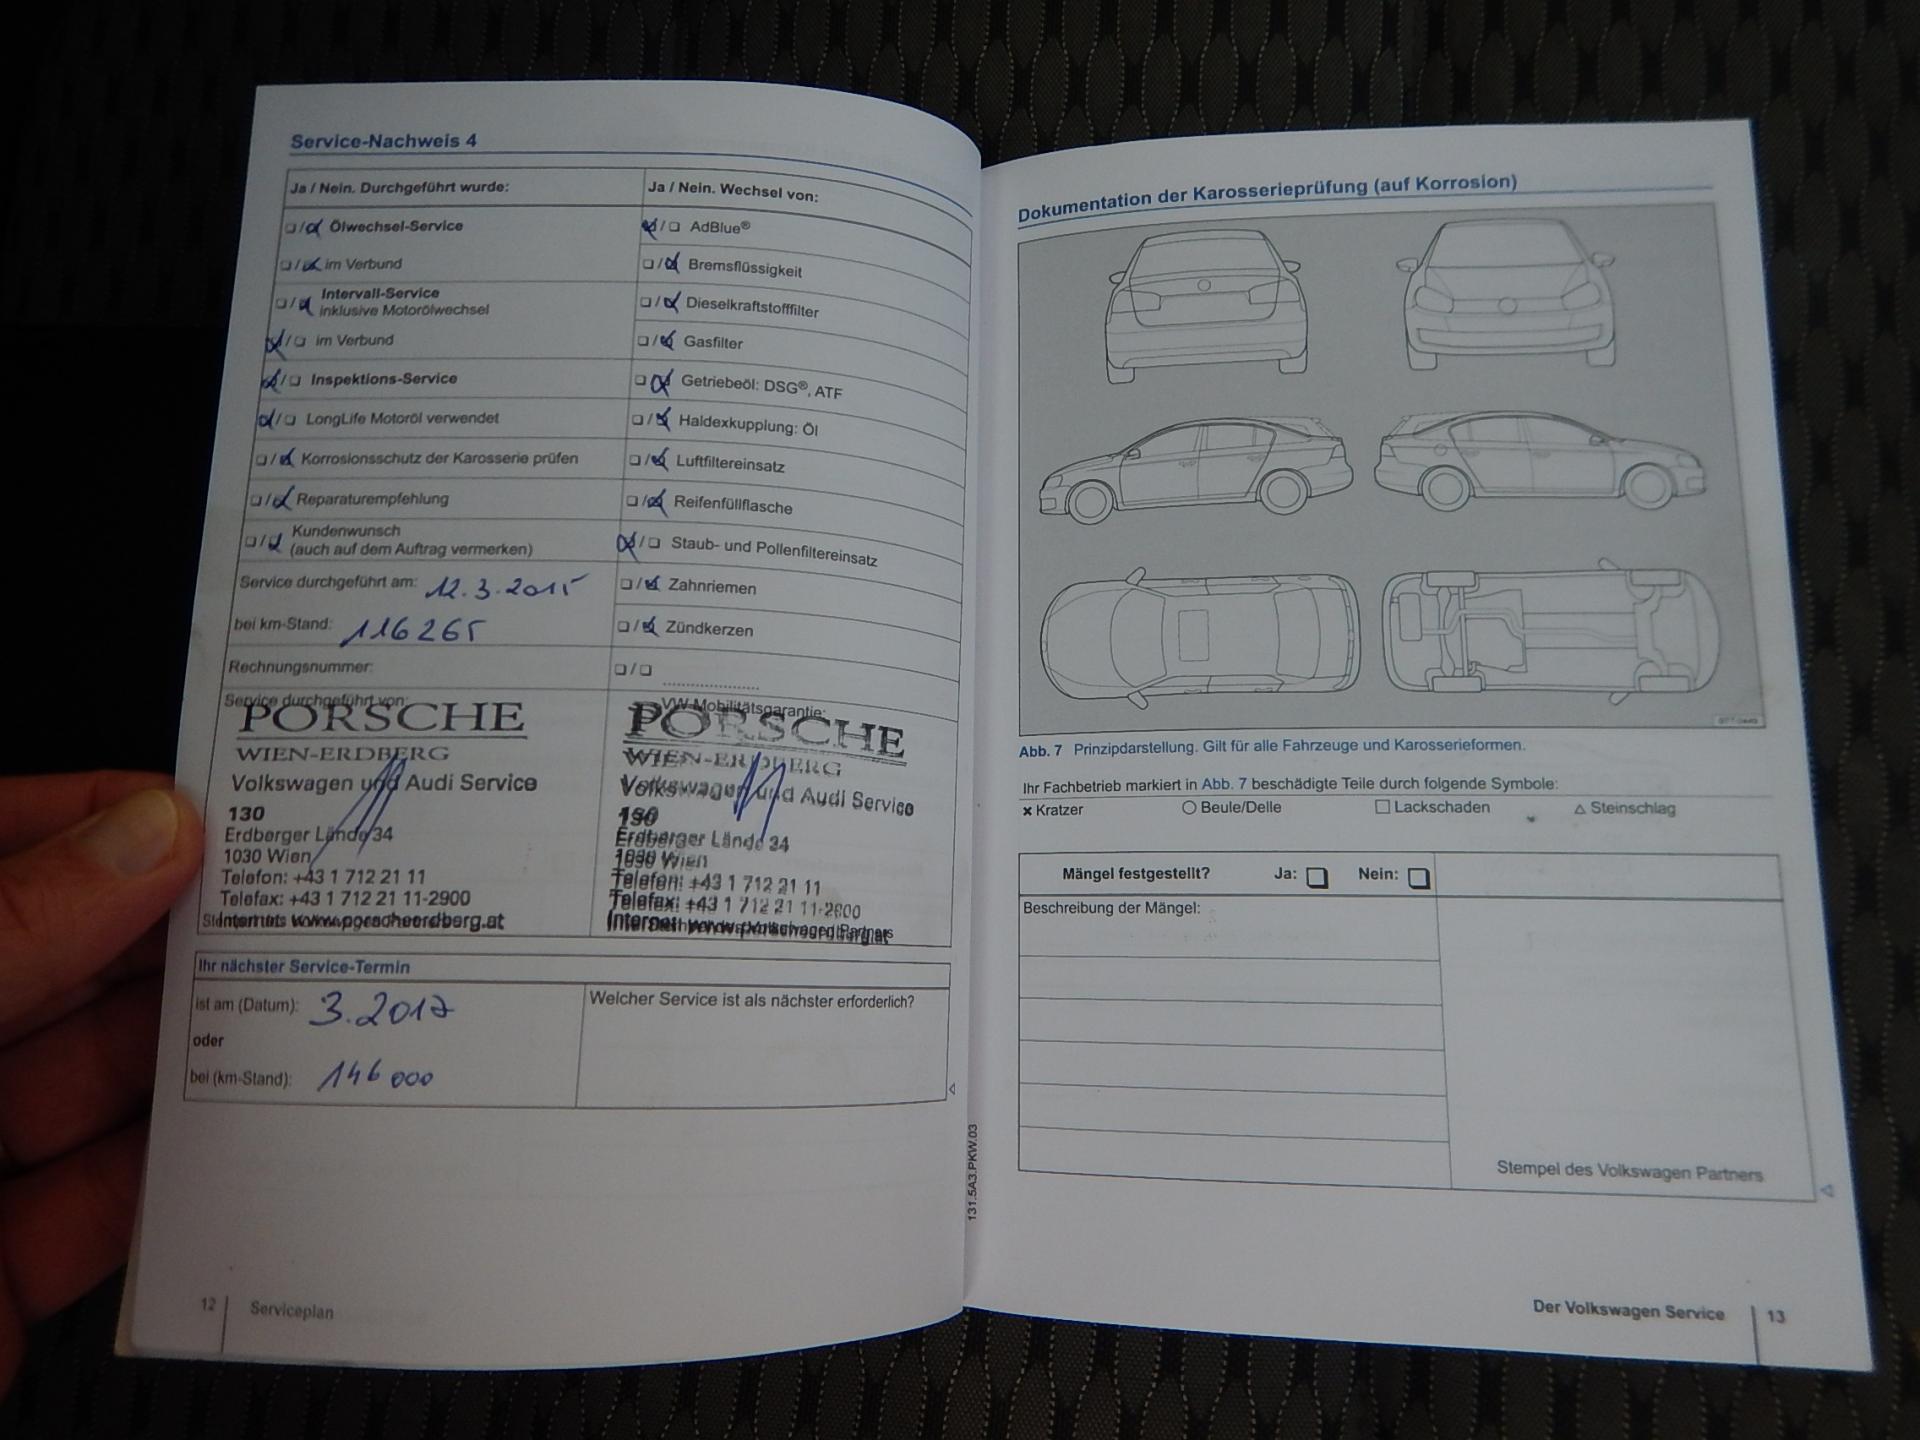 Service-Nachweis 4
Ja / Nein. Durchgeführt wurde:
❏/❏ Ölwechsel-Service
❏/❏ im Verbund
❏/❏ Intervall-Service
inklusive Motorölwechsel
❏/❏ im Verbund
❏/❏ Inspektions-Service
❏/❏ LongLife Motoröl verwendet
❏/❏ Korrosionsschutz der Karosserie prüfen
❏/❏ Reparaturempfehlung
❏/❏ Kundenwunsch
(auch auf dem Auftrag vermerken)
Service durchgeführt am: 12.3.2015
bei km-Stand: 116265
Rechnungsnummer:
Ja / Nein. Wechsel von:
❏/❏ AdBlue®
❏/❏ Bremsflüssigkeit
❏/❏ Dieselkraftstofffilter
❏/❏ Gasfilter
❏/❏ Getriebeöl: DSG®, ATF
❏/❏ Haldexkupplung: Öl
❏/❏ Luftfiltereinsatz
❏/❏ Reifenfüllflasche
❏/❏ Staub- und Pollenfiltereinsatz
❏/❏ Zahnriemen
❏/❏ Zündkerzen
❏/❏ ....................
Service durchgeführt von:
PORSCHE
WIEN-ERDBERG
Volkswagen und Audi Service
130
Erdberger Lände 34
1030 Wien
Telefon: +43 1 712 21 11
Telefax: +43 1 712 21 11-2900
Internet: www.porscheerdberg.at
VW-Mobilitätsgarantie:
PORSCHE
WIEN-ERDBERG
Volkswagen und Audi Service
130
Erdberger Lände 34
1030 Wien
Telefon: +43 1 712 21 11
Telefax: +43 1 712 21 11-2900
Ihr nächster Service-Termin
ist am (Datum): 3.2017
oder
bei (km-Stand): 146 000
Welcher Service ist als nächster erforderlich?
131.5A3.PKW.03
12 Serviceplan
Dokumentation der Karosserieprüfung (auf Korrosion)
Abb. 7 Prinzipdarstellung. Gilt für alle Fahrzeuge und Karosserieformen.
Ihr Fachbetrieb markiert in Abb. 7 beschädigte Teile durch folgende Symbole:
× Kratzer ○ Beule/Delle □ Lackschaden △ Steinschlag
Mängel festgestellt? Ja: ❏ Nein: ❏
Beschreibung der Mängel:
Stempel des Volkswagen Partners
Der Volkswagen Service 13